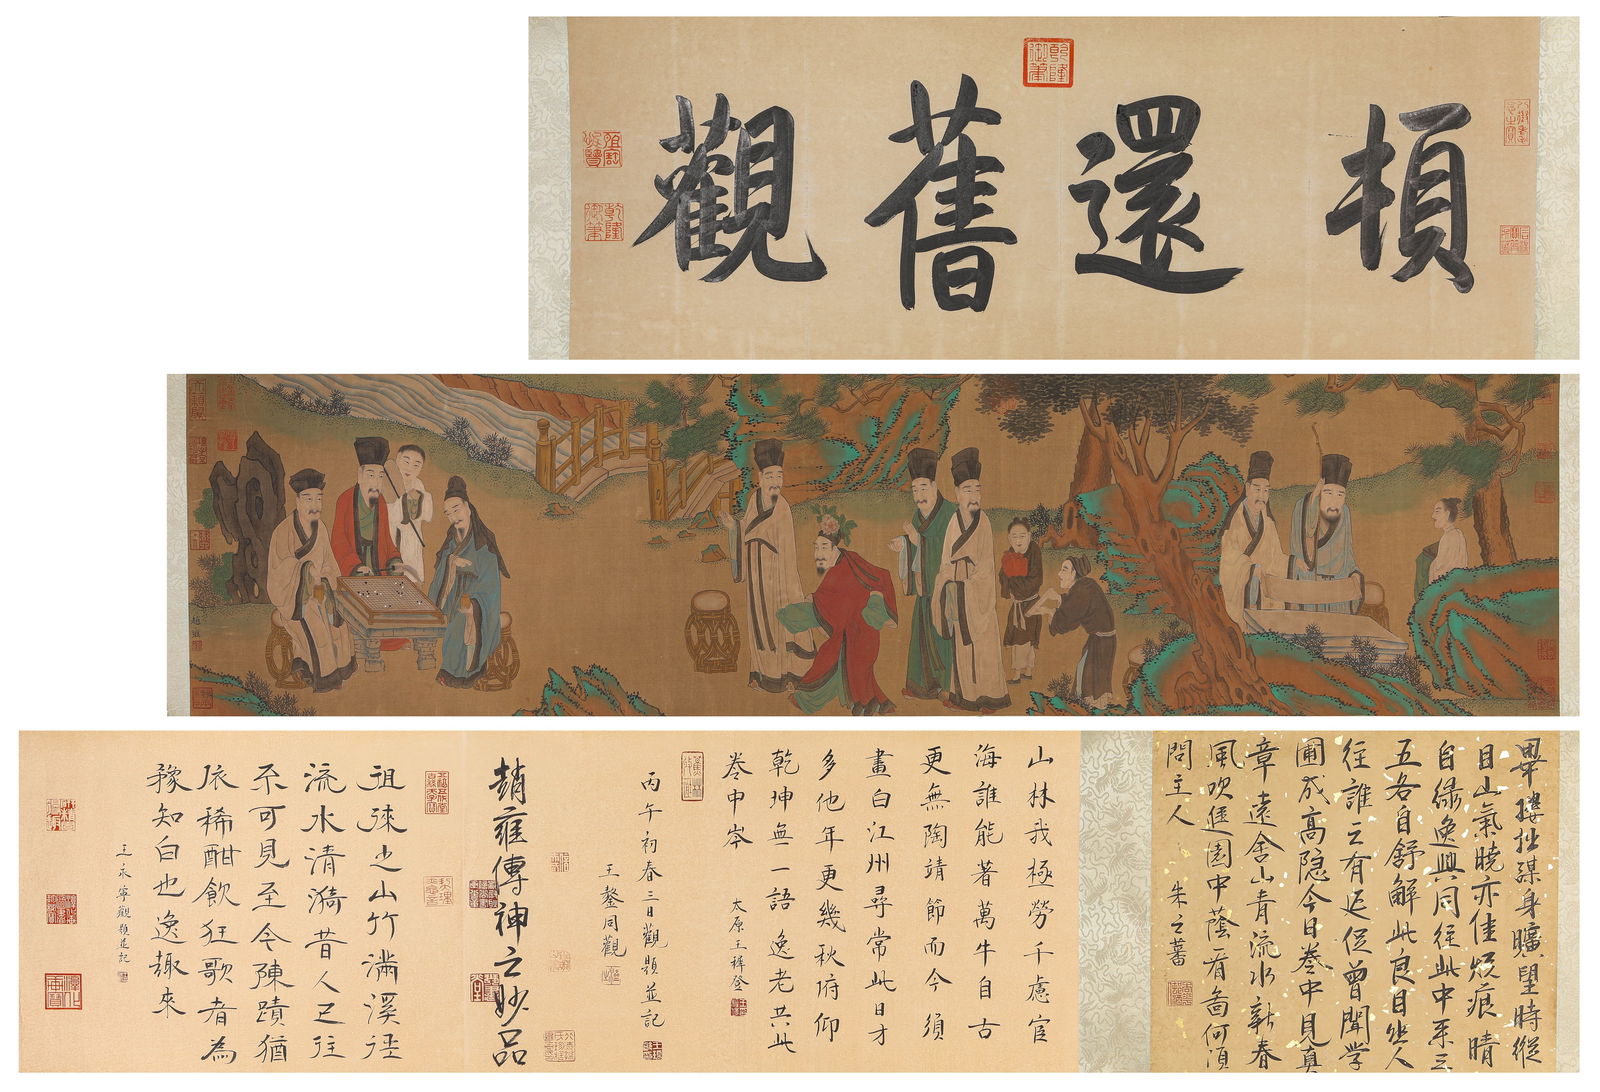 頓還舊觀
乾隆御筆
乾隆御筆
趙雍
拙謀身曠望時縱
目山氣曉亦佳煙痕晴
自綠逸興同往此中系三
五各自舒解此良目坐人
往誰云有延促曾聞學
圃成高隐今日卷中見真
章遠舍山青流水新春
風吹逕園中蔭有何須
問主人
朱之蕃
山林我極勞千慮宦
海誰能著萬牛自古
更無陶靖節而今須
畫白江州尋常此日才
多他年更幾秋府仰
乾坤無一語逸老共此
卷中岑
太原王穉登
丙午初春三日觀題並記
王鏊同觀
趙雍傳神之妙品
徂徠之山竹滿溪徑
流水清漪昔人已往
不可見至今陳蹟猶
依稀酣飲狂歌者為
豫知白也逸趣來
王永寧觀題並記